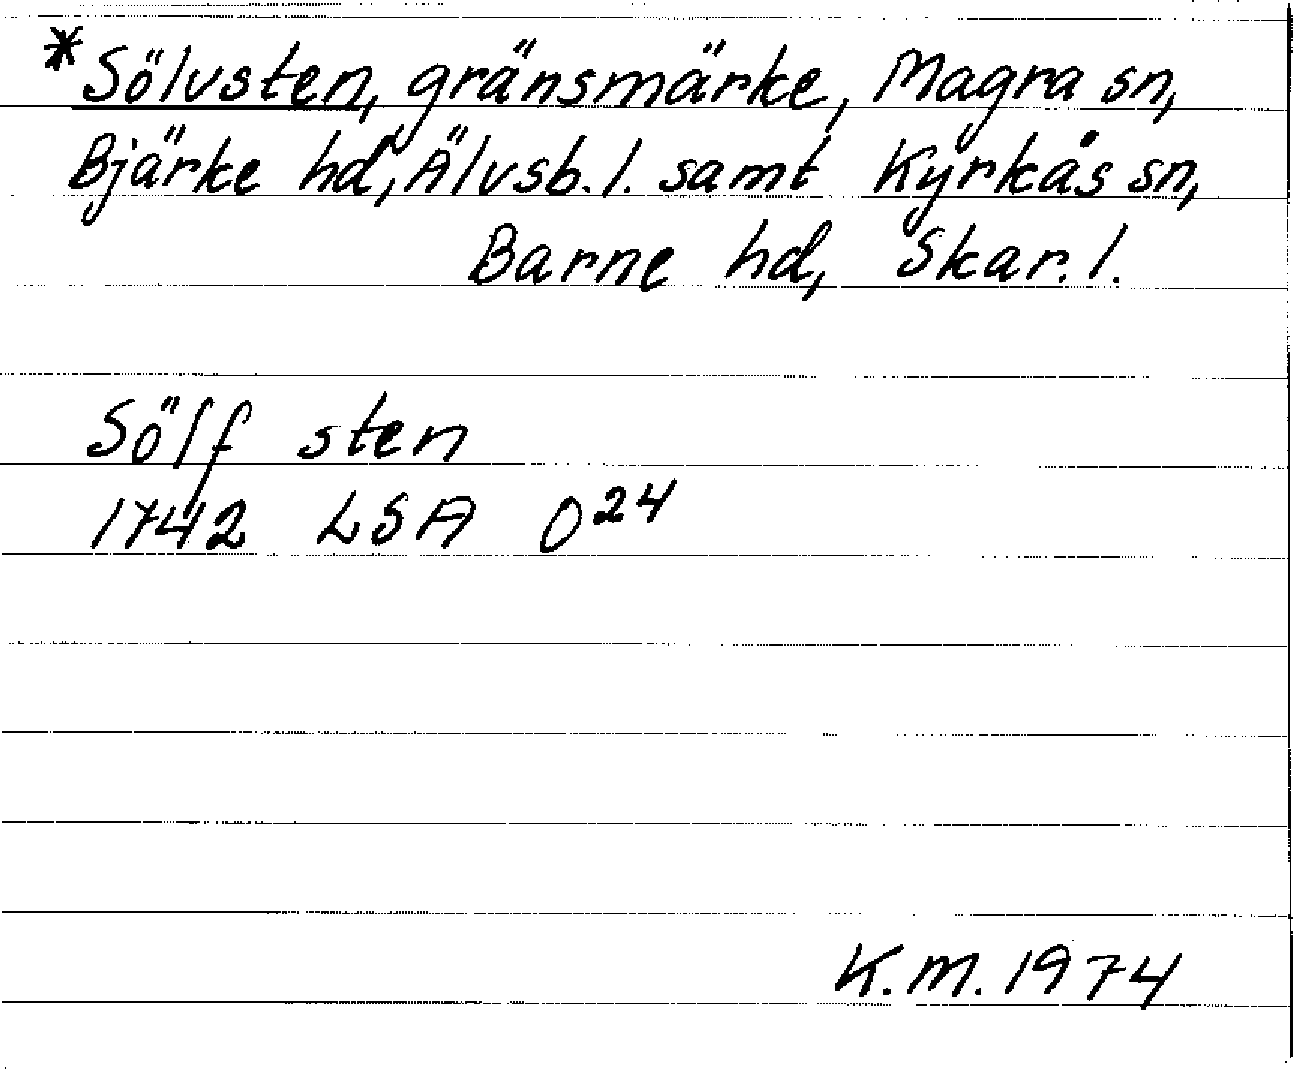 * Sölvsten, gränsmärke, Magra sn,
Bjärke hd, Älvsb. l. samt Kyrkås sn,
Barne hd, Skar. l.
Sölf sten
1742 LSA O24
K.M. 1974